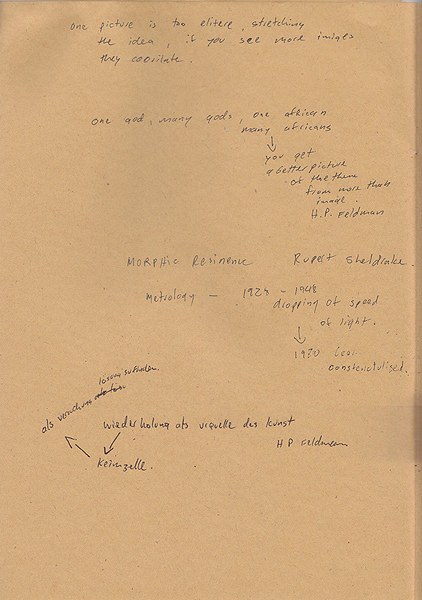 one picture is too elitere, stretching
the idea, if you see more images
they coorilate.
one god, many gods, one african
many africans
you get
a better picture
of the theme
from more than
image.
H.P. Feldman
MORPHIC Resinence Rupert Sheldrake.
Metrology – 1928 – 1948
dropping of speed
of light.
1970
wiederholung als urquelle des kunst
H P Feldmann
Keimzelle.
als